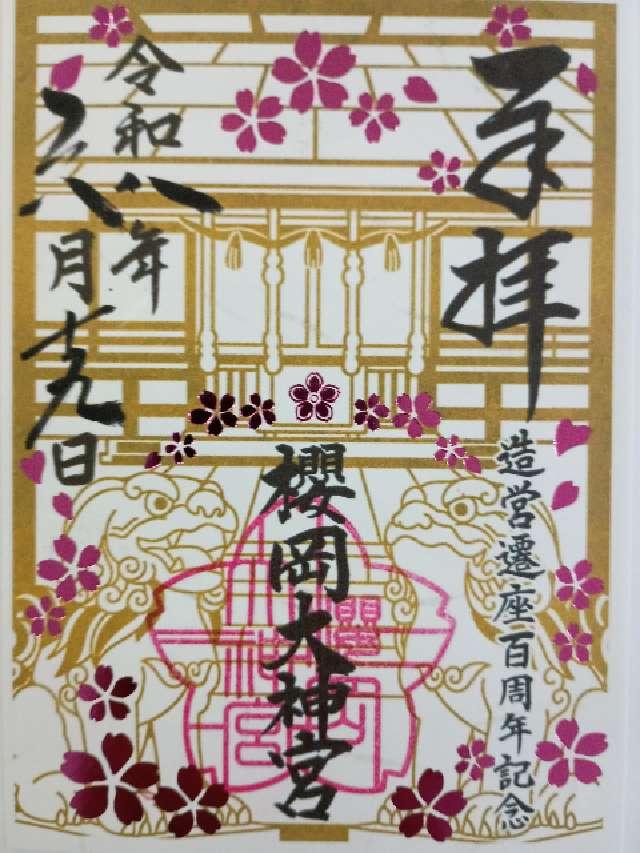 奉拝
造営遷座百周年記念
櫻岡大神宮
櫻岡
大神宮
令和八年
六月十九日